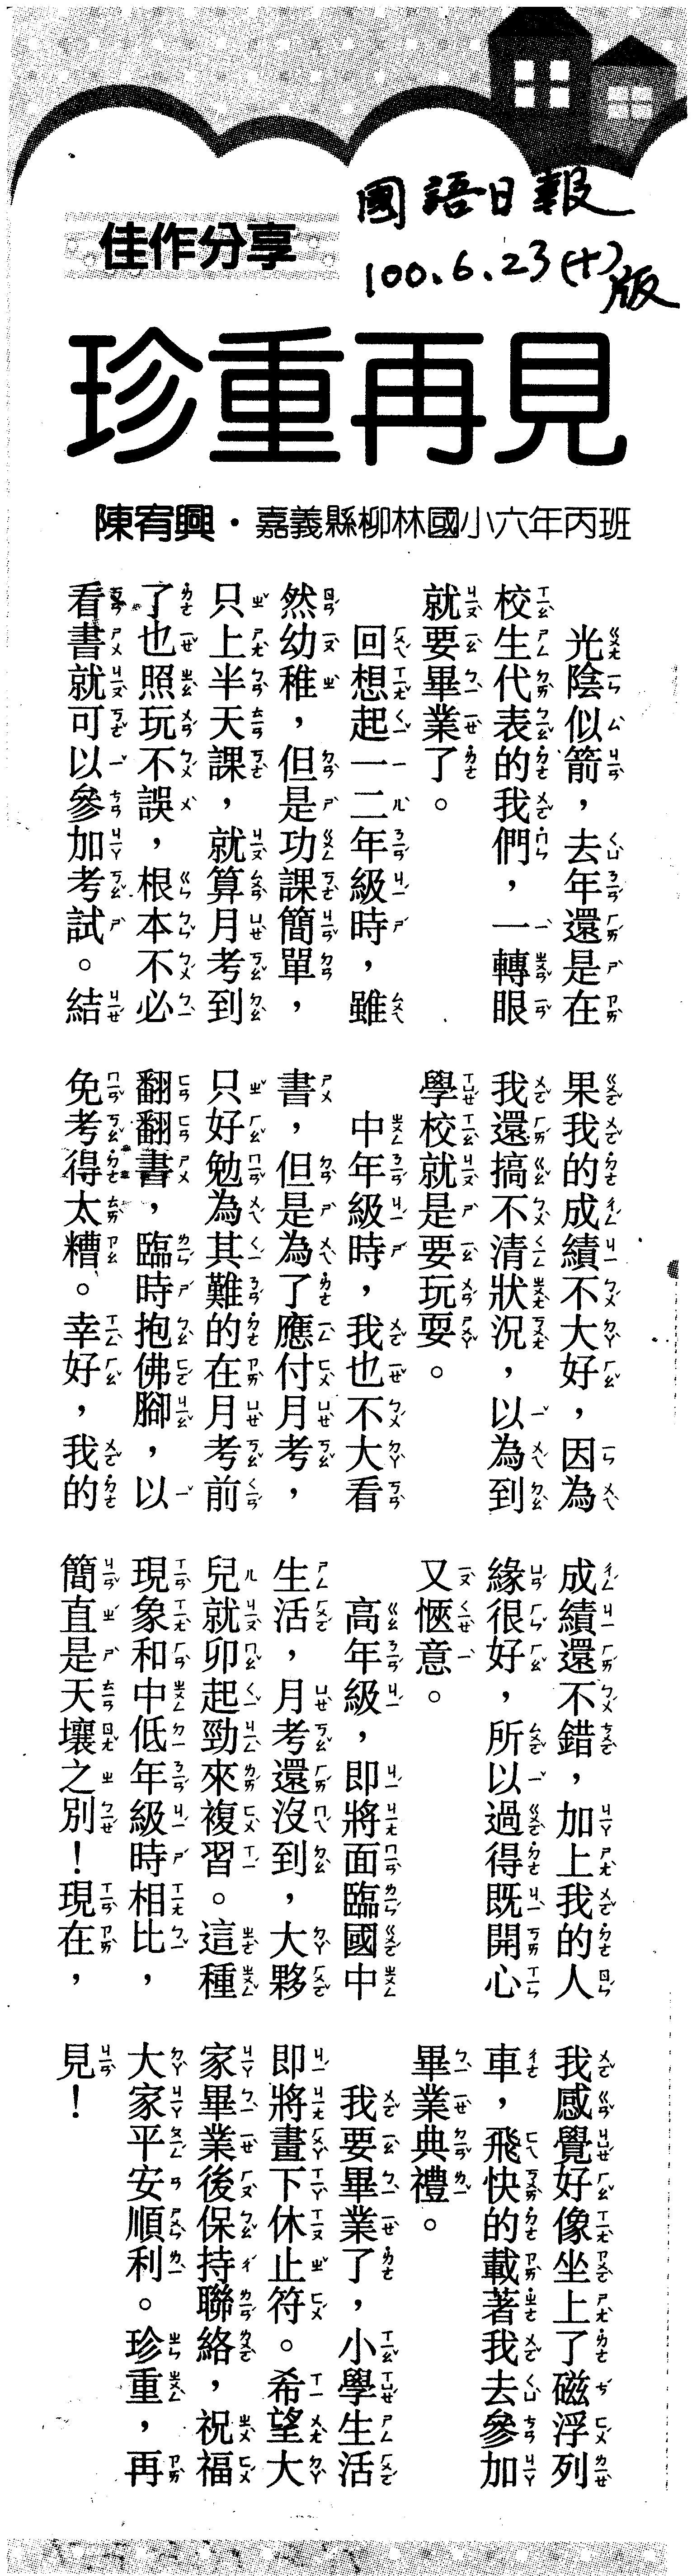 國語日報
100.6.23(十)版
佳作分享
珍重再見
陳宥興・嘉義縣柳林國小六年丙班
光陰似箭，去年還是在
校生代表的我們，一轉眼
就要畢業了。
回想起一二年級時，雖
然幼稚，但是功課簡單，
只上半天課，就算月考到
了也照玩不誤，根本不必
看書就可以參加考試。結
果我的成績不大好，因為
我還搞不清狀況，以為到
學校就是要玩耍。
中年級時，我也不大看
書，但是為了應付月考，
只好勉為其難的在月考前
翻翻書，臨時抱佛腳，以
免考得太糟。幸好，我的
成績還不錯，加上我的人
緣很好，所以過得既開心
又愜意。
高年級，即將面臨國中
生活，月考還沒到，大夥
兒就卯起勁來複習。這種
現象和中低年級時相比，
簡直是天壤之別！現在，
我感覺好像坐上了磁浮列
車，飛快的載著我去參加
畢業典禮。
我要畢業了，小學生活
即將畫下休止符。希望大
家畢業後保持聯絡，祝福
大家平安順利。珍重，再
見！